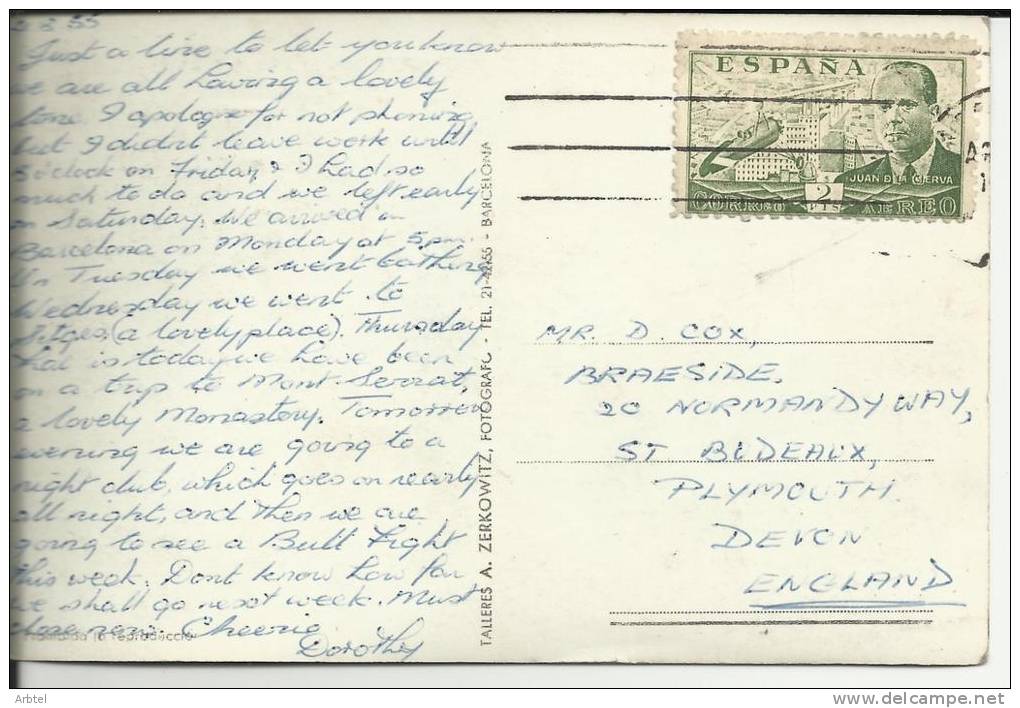 Just a line to let you know
we are all having a lovely
time. I apologise for not phoning,
but I didnt leave work until
5 o'clock on Friday, & I had so
much to do and we left early
on Saturday. We arrived in
Barcelona on Monday at 5 pm.
On Tuesday we went bathing
Wednesday we went to
Sitges (a lovely place). Thursday
that is today we have been
on a trip to Mont Serrat,
a lovely Monastery. Tomorrow
evening we are going to a
night club, which goes on nearly
all night, and then we are
going to see a Bull Fight
this week. Dont know how far
we shall go next week. Must
close now. Cheerio
Dorothy
la reproducció
TALLERES A. ZERKOWITZ, FOTOGRAFO - TEL. 21-42-55 - BARCELONA
ESPAÑA
JUAN DE LA CIERVA
CORREO 2 PTS AEREO
MR. D. COX,
BRAESIDE,
20 NORMANDY WAY,
ST BUDEAUX,
PLYMOUTH
DEVON
ENGLAND
Arbtel
www.delcampe.net